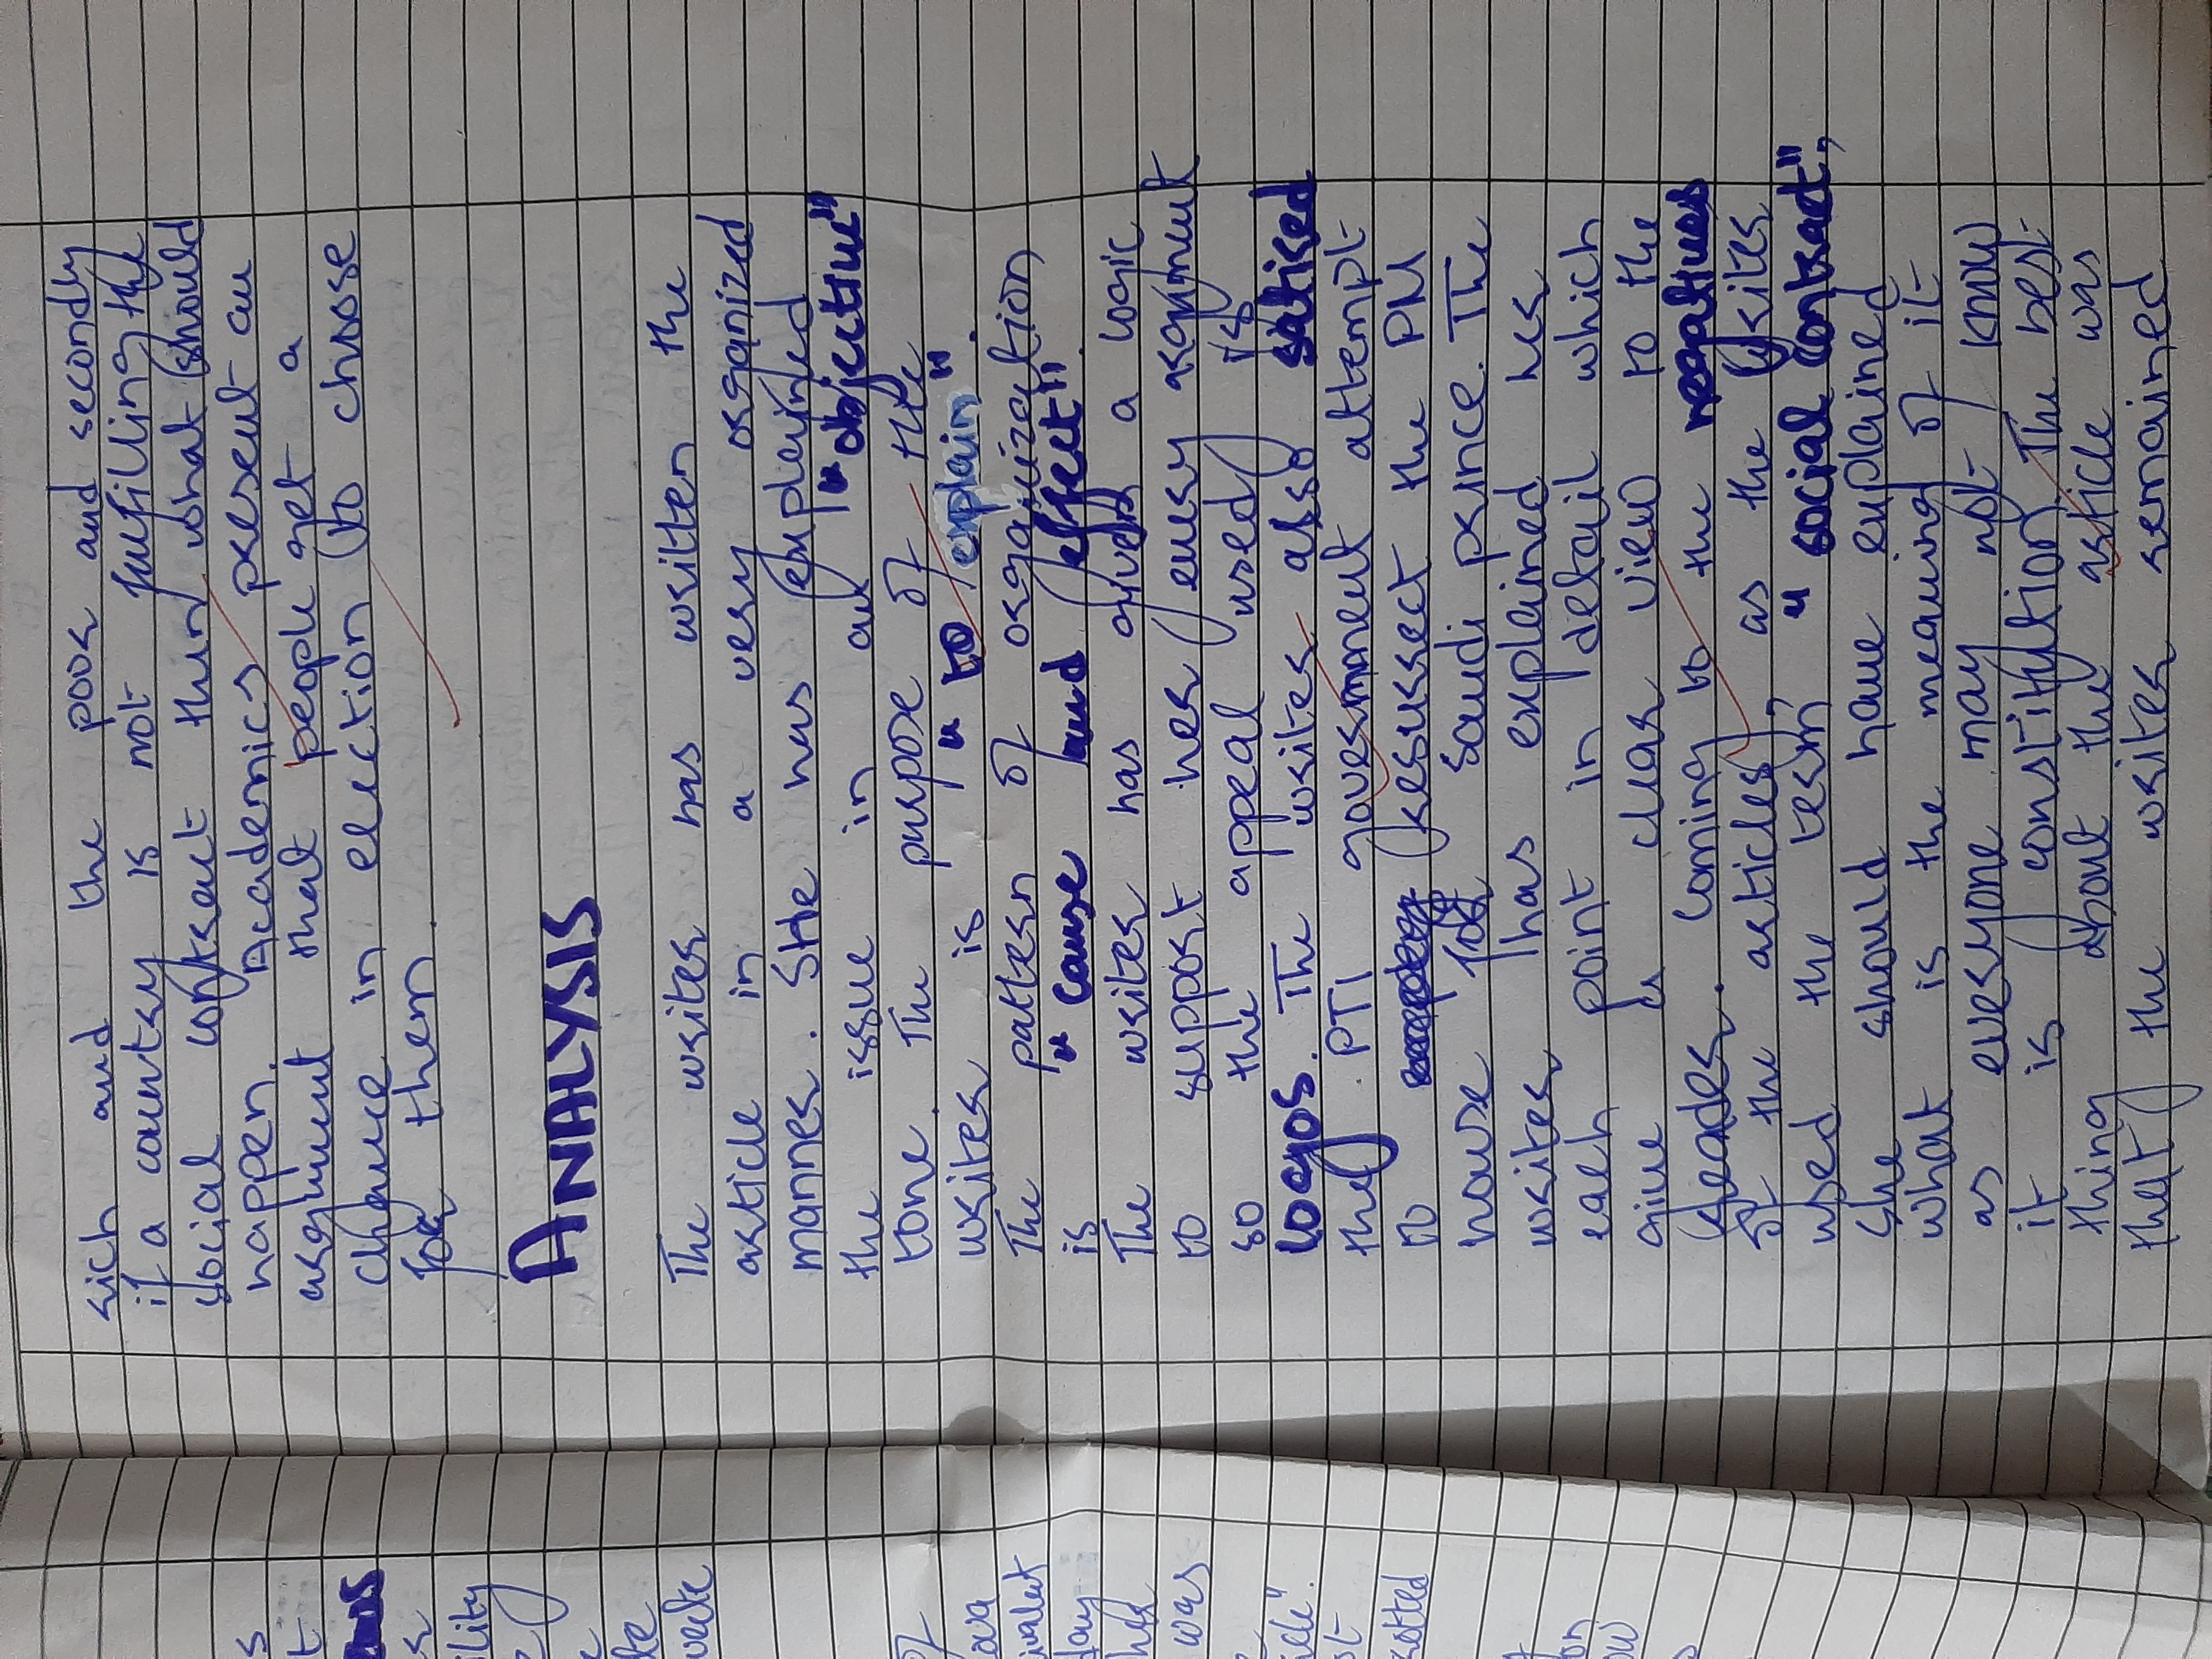 rich and the poor and secondly
if a country is not fulfilling the
social contract then what should
happen. Academics present an
argument that people get a
chance in election to choose
for them.
ANALYSIS
The writer has written the
article in a very organized
manner. She has explained
the issue in an "objective"
tone. The purpose of the
writer is "to explain".
The pattern of organization
is "cause and effect".
The writer has given a logic
to support her every argument
so the appeal used is
Logos. The writer also satired
the PTI government attempt
to resurrect the PM
house for saudi prince. The
writer has explained her
each point in detail which
give a clear view to the
reader. Coming to the negatives
of the articles, as the writer
used the term "social contract",
she should have explained
what is the meaning of it
as everyone may not know
it is constitution. The best
thing about the article was
that the writer remained